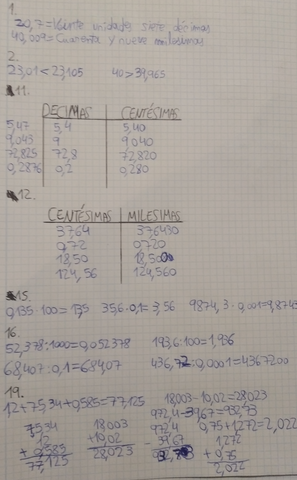 1.
20,7=Veinte unidades siete décimas
40,009=Cuarenta y nueve milésimas
2.
23,01<23,105 40>39,965
11.
DECIMAS CENTÉSIMAS
5,47 5,4 5,40
9,043 9 9,040
72,825 72,8 72,820
0,2876 0,2 0,280
12.
CENTÉSIMAS MILESIMAS
37,64 37,6430
0,72 0,720
18,50 18,500
124,56 124,560
15.
0,135·100=13,5 35,6·0,1=3,56 9874,3·0,001=9,8743
16.
52,378:1000=0,052378 193,6:100=1,936
6840,7:0,1=68407 436,72:0,0001=4367200
19.
12+75,34+0,585=77,125 18003-10,02=28,023
972,4-39,67=932,73
75,34 18,003 972,4 0,75+1,272=2,022
12 +10,02 - 39,67 1,272
+ 0,585 28,023 932,73 + 0,75
77,125 2,022